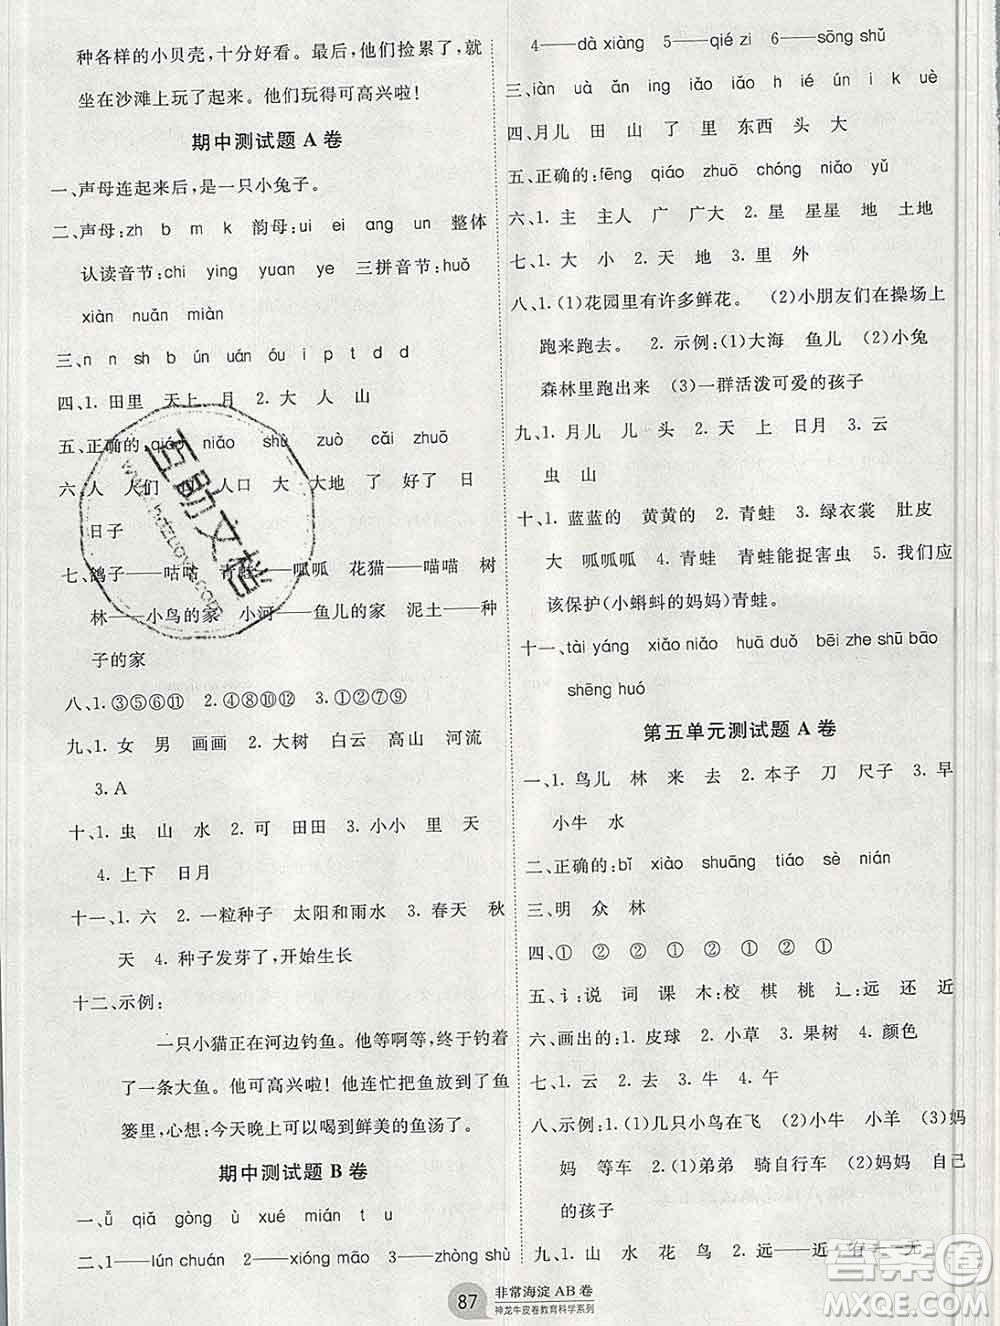 种各样的小贝壳,十分好看。最后,他们捡累了,就
坐在沙滩上玩了起来。他们玩得可高兴啦!
期中测试题 A 卷
一、声母连起来后,是一只小兔子。
二、声母:zh b m k 韵母:ui ei ang un 整体
认读音节:chi ying yuan ye 三拼音节:huǒ
xiàn nuǎn miàn
三、n n sh b ún uán óu i p t d d
四、1. 田里 天上 月 2. 大 人 山
五、正确的:qiáo niǎo shù zuò cǎi zhuō
六、人 人们 人口 大 大地 了 好了 日
日子
七、鸽子——咕咕 青蛙——呱呱 花猫——喵喵 树
林——小鸟的家 小河——鱼儿的家 泥土——种
子的家
八、1. ③⑤⑥⑪ 2. ④⑧⑩⑫ 3. ①②⑦⑨
九、1. 女 男 画画 2. 大树 白云 高山 河流
3. A
十、1. 虫 山 水 2. 可 田田 3. 小小 里 天
4. 上下 日月
十一、1. 六 2. 一粒种子 太阳和雨水 3. 春天 秋
天 4. 种子发芽了,开始生长
十二、示例:
一只小猫正在河边钓鱼。他等啊等,终于钓着
了一条大鱼。他可高兴啦!他连忙把鱼放到了鱼
篓里,心想:今天晚上可以喝到鲜美的鱼汤了。
期中测试题 B 卷
一、ǘ qiǎ gòng ù xué mián t u
二、1——lún chuán 2——xióng māo 3——zhòng shù
4——dà xiàng 5——qié zi 6——sōng shǔ
三、iàn uà ǎn iǎo iǎo h ié ún i k uè
四、月儿 田 山 了 里 东西 头 大
五、正确的:fēng qiáo zhuō chóng niǎo yǔ
六、1. 主 主人 广 广大 2. 星 星星 地 土地
七、1. 大 小 2. 天 地 3. 里 外
八、1. (1)花园里有许多鲜花。 (2)小朋友们在操场上
跑来跑去。 2. 示例:(1)大海 鱼儿 (2)小兔
森林里跑出来 (3)一群活泼可爱的孩子
九、1. 月儿 儿 头 2. 天 上 日月 3. 云
虫 山
十、1. 蓝蓝的 黄黄的 2. 青蛙 3. 绿衣裳 肚皮
大 呱呱呱 4. 青蛙 青蛙能捉害虫 5. 我们应
该保护(小蝌蚪的妈妈)青蛙。
十一、tài yáng xiǎo niǎo huā duǒ bēi zhe shū bāo
shēng huó
第五单元测试题 A 卷
一、1. 鸟儿 林 来 去 2. 本子 刀 尺子 3. 早
小牛 水
二、正确的:bǐ xiào shuāng tiáo sè nián
三、明 众 林
四、① ② ② ① ② ① ② ①
五、讠:说 词 课 木:校 棋 桃 辶:远 还 近
六、画出的:1. 皮球 2. 小草 3. 果树 4. 颜色
七、1. 云 2. 去 3. 牛 4. 午
八、示例:1. (1)几只小鸟在飞 (2)小牛 小羊 (3)妈
妈 等车 2. (1)弟弟 骑自行车 (2)妈妈 自己
的孩子
九、1. 山 水 花 鸟 2. 远——近
87
非常海淀 AB 卷
神龙牛皮卷教育科学系列
互助文档
答案圈
MXQE.COM